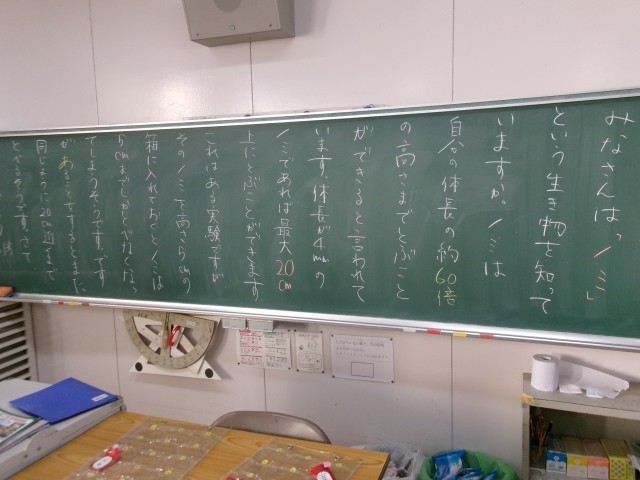 みなさんは「ノミ」
という生き物を知って
いますか。ノミは
自分の体長の約60倍
の高さまでとぶこと
ができると言われて
います。体長が4mmの
ノミであれば最大20cm
上にとぶことができます
これはある実験ですが
そのノミを高さ5cmの
箱に入れておくとノミは
5cmまでしかとべなくなっ
てしまうそうです。です
があることをするとまた
同じように20cm
とべるそうです。